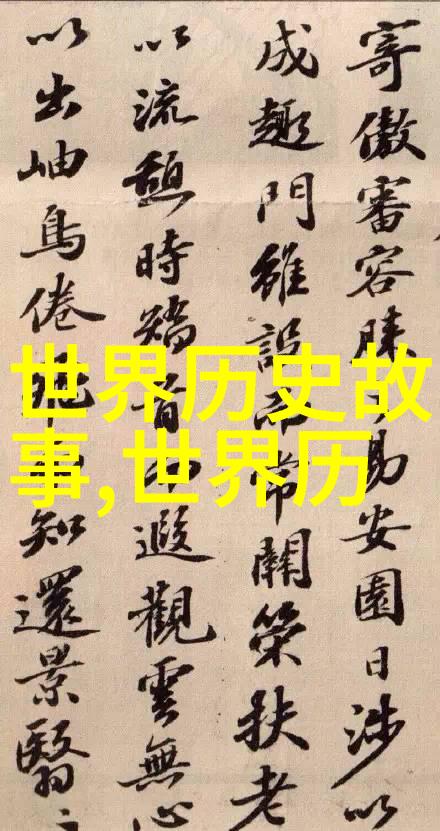 寄傲審容膝之易安園日涉以
成趣門雖設而常關策扶老
以流憩時矯首而遐觀雲無心
以出岫鳥倦飛而知還景翳
世界历史故
事,世界历